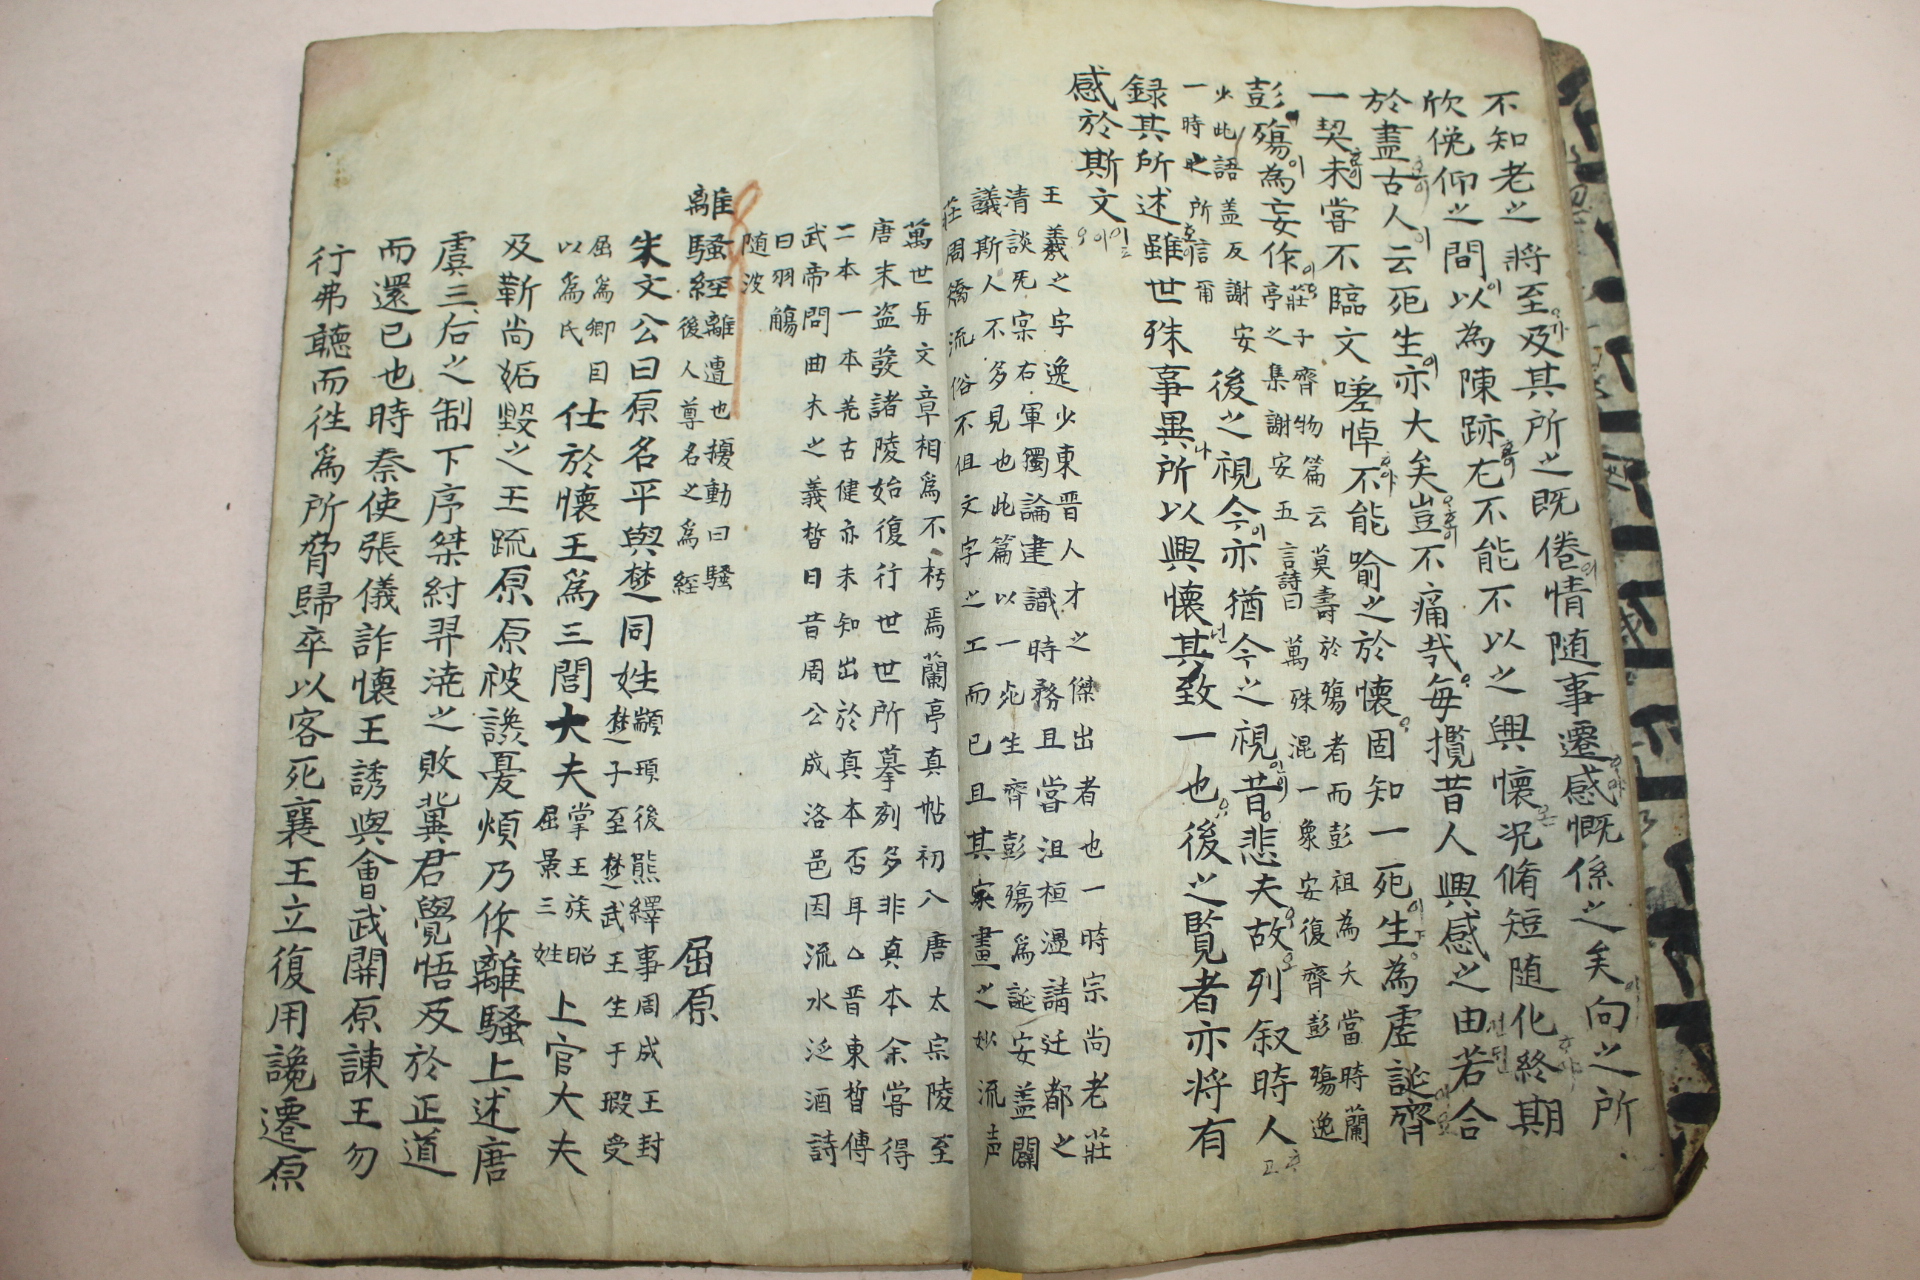 不知老之將至及其所之既倦情随事遷感慨係之矣向之所
欣俛仰之間以為陳跡尤不能不以之興懷况脩短随化終期
於盡古人云死生亦大矣豈不痛㢤每攬昔人興感之由若合
一契未嘗不臨文嗟悼不能喻之於懷固知一死生為虛誕齊
彭殤為妄作
莊子齊物篇云莫壽於殤者而彭祖為夭當時蘭
亭之集謝安五言詩曰萬殊混一象安復齊彭殤逸
少此語盖反謝安
一時之所信爾
後之視今亦猶今之視昔悲夫故列叙時人
録其所述雖世殊事異所以興懷其致一也後之覧者亦将有
感於斯文
王羲之字逸少東晋人才之傑出者也一時宗尚老莊
清談死宲右軍獨論建識時務且嘗沮桓温請迁都之
議斯人不多見也此篇以一死生齊彭殤爲誕妄盖闢
莊周矯流俗不但文字之工而已且其家畫之妙流声
萬世与文章相爲不朽焉蘭亭真帖初入唐太宗陵至
唐末盗發諸陵始復行世世所摹刻多非真本余嘗得
二本一本羌古健亦未知出於真本否耳△晋東晳傳
武帝問曲木之義晳曰昔周公成洛邑因流水泛酒詩
曰羽觴
随波
離騷經
離遭也擾動曰騷
後人尊名之爲經
屈原
朱文公曰原名平與楚同姓
顓頊後熊繹事周成王封
楚子至楚武王生于瑕受
屈爲卿目
以爲氏
仕於懷王爲三閭大夫
掌王族昭
屈景三姓
上官大夫
及靳尚妬毀之王疏原原被讒憂煩乃作離騷上述唐
虞三后之制下序桀紂羿澆之敗冀君覺悟反於正道
而還已也時秦使張儀詐懷王誘與會武關原諫王勿
行弗聽而徃爲所脅歸卒以客死襄王立復用讒遷原